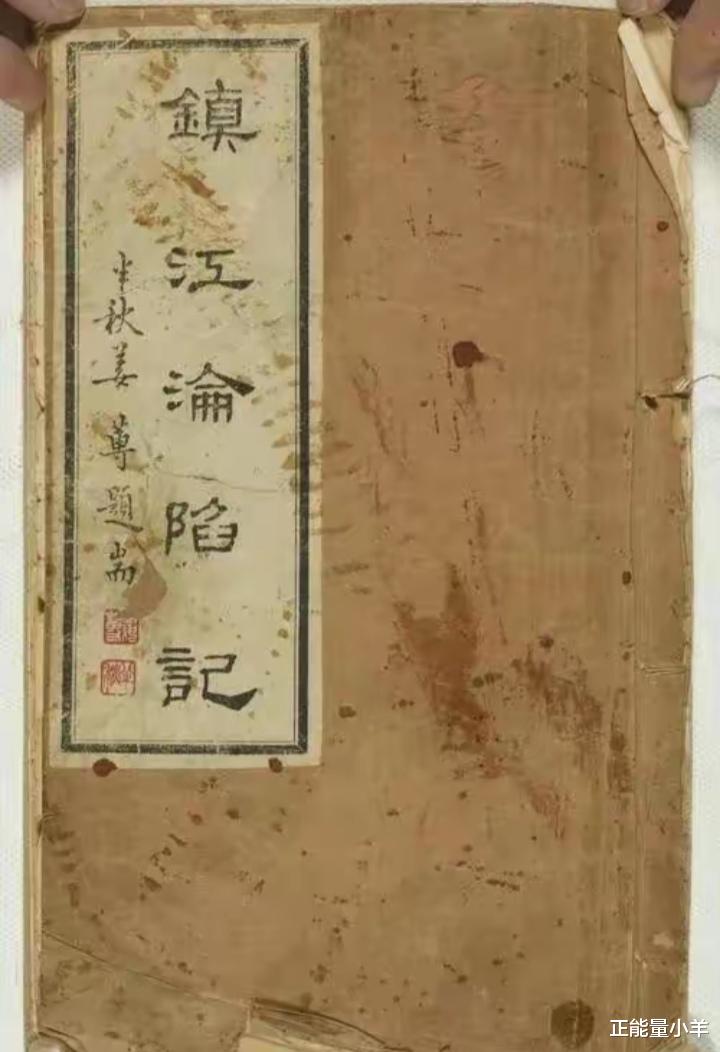 鎮江淪陷記
半秋姜蓴題耑
正能量小羊